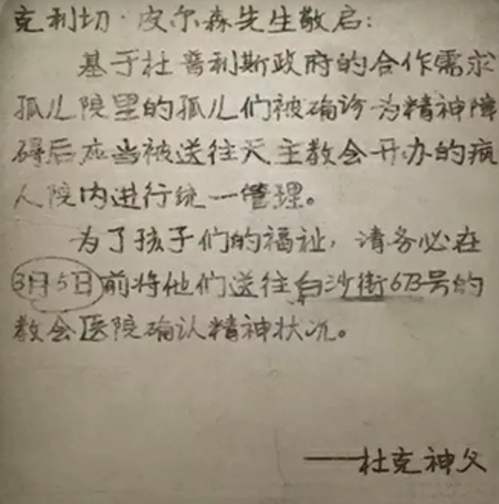 克利切·皮尔森先生敬启:
基于杜普利斯政府的合作需求
孤儿院里的孤儿们被确诊为精神障
碍后应当被送往天主教会开办的疯
人院内进行统一管理。
为了孩子们的福祉,请务必在
3月5日前将他们送往白沙街673号的
教会医院确认精神状况。
——杜克神父